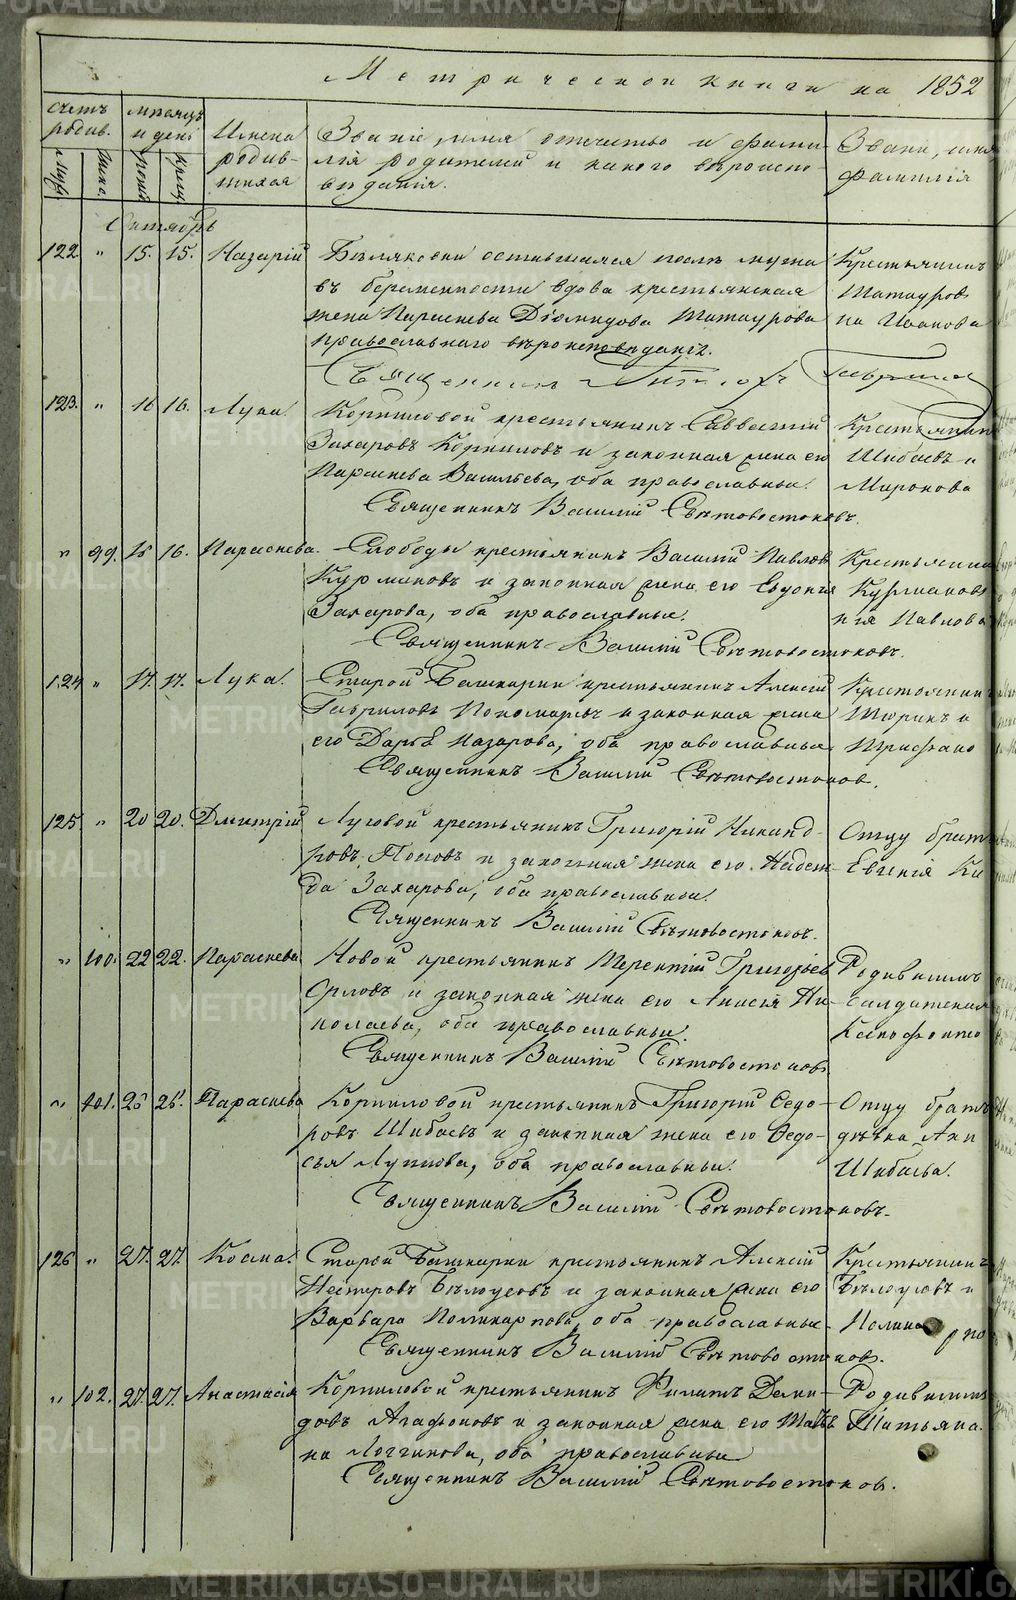 Метрической книги на 1852
Счетъ родив.
Муж.
Жен.
мѣсяцъ и день
Рожд.
Крещ.
Имена родив-
шихся
Званіе, имя, отчество и фами-
лія родителей и какого вѣроиспо-
вѣданія.
Званіе, имя
фамилія
Октябрь
122 " 15. 15. Назарій
Бѣляковки оставшаяся послѣ мужа
въ беременности вдова крестьянская
жена Параскева Діомидова Татаурова
православнаго вѣроисповѣданія.
Священникъ
Крестьянинъ
Татауровъ
на Иванова
123. " 16 16. Лука.
Корниловой крестьянинъ Савватій
Захаровъ Корниловъ и законная жена его
Параскева Васильева, оба православные.
Священникъ Василій Свѣтовостоковъ.
Крестьянинъ
Шибаевъ и
Миронова
" 99. 15 16. Параскева.
Слободы крестьянинъ Василій Павловъ
Курмановъ и законная жена его Евдокія
Захарова, оба православные.
Священникъ Василій Свѣтовостоковъ.
Крестьянинъ
Курмановъ
кія Павлова
124 " 17. 17. Лука.
Старой Башкарки крестьянинъ Алексій
Гавриловъ Пономаревъ и законная жена
его Дарья Назарова, оба православные
Священникъ Василій Свѣтовостоковъ.
Крестьянинъ
Тюринъ и
Трифано
125 " 20 20. Дмитрій
Луговой крестьянинъ Григорій Никанд-
ровъ Поповъ и законная жена его Надеж-
да Захарова, оба православные.
Священникъ Василій Свѣтовостоковъ.
Отцу братъ
Евгенія Ки
" 100. 22 22. Параскева
Новой крестьянинъ Терентій Григорьев
Орловъ и законная жена его Анисія Ни-
колаева, оба православные.
Священникъ Василій Свѣтовостоковъ
Родившимъ
солдатская
Ксенофонто
" 101. 25 25. Параскева
Корниловой крестьянинъ Григорій Ѳедо-
ровъ Шибаевъ и законная жена его Ѳедо-
сья Луппова, оба православные.
Священникъ Василій Свѣтовостоковъ.
Отцу братъ
дѣвка Анн
Шибаева.
126 " 27. 27. Косма.
Старой Башкарки крестьянинъ Алексій
Нестеровъ Бѣлоусовъ и законная жена его
Варвара Поликарпова, оба православные
Священникъ Василій Свѣтовостоковъ.
Крестьянинъ
Бѣлоусовъ и
Поликарпо
" 102. 27. 27. Анастасія
Корниловой крестьянинъ Филатъ Деми-
довъ Агафоновъ и законная жена его Татья-
на Логгинова, оба православные
Священникъ Василій Свѣтовостоковъ.
Родившимъ
Татьяна.
METRIKI.GASO-URAL.RU